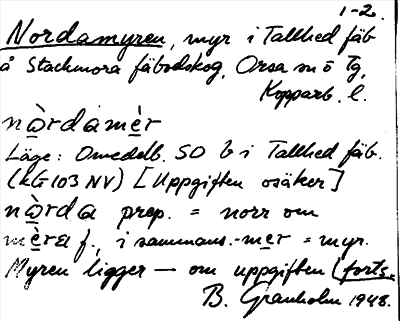 1-2.
Nordamyren, myr i Tallhed fäb
å Stackmora fäbodskog, Orsa sn ö Tg,
Kopparb. l.
nà̱rdamè̱r
Läge: Omedelb. SO b i Tallhed fäb.
(kG103 NV) [Uppgiften osäker]
nà̱rda prep. = norr om
mè̱ra f., i sammans. -me̱r = myr.
Myren ligger — om uppgiften (forts.
B. Granholm 1948.